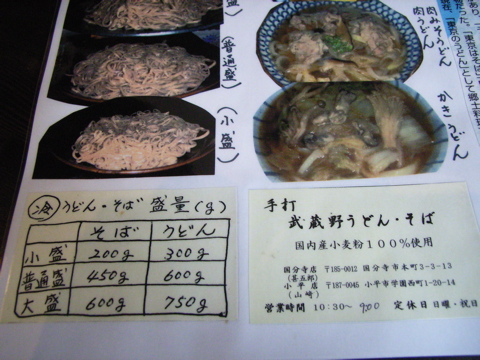 盛
(普通盛)
(小盛)
肉みそうどん
肉うどん
かきうどん
「東京のうどん」として郷土料理
冷 うどん・そば 盛量(g)
そば うどん
小盛 200g 300g
普通盛 450g 600g
大盛 600g 750g
手打
武蔵野うどん・そば
国内産小麦粉100%使用
国分寺店 〒185-0012 国分寺市本町3-3-13
(甚五郎)
小平店 〒187-0045 小平市学園西町1-20-14
(山崎)
営業時間 10:30~ 9:00 定休日 日曜・祝日